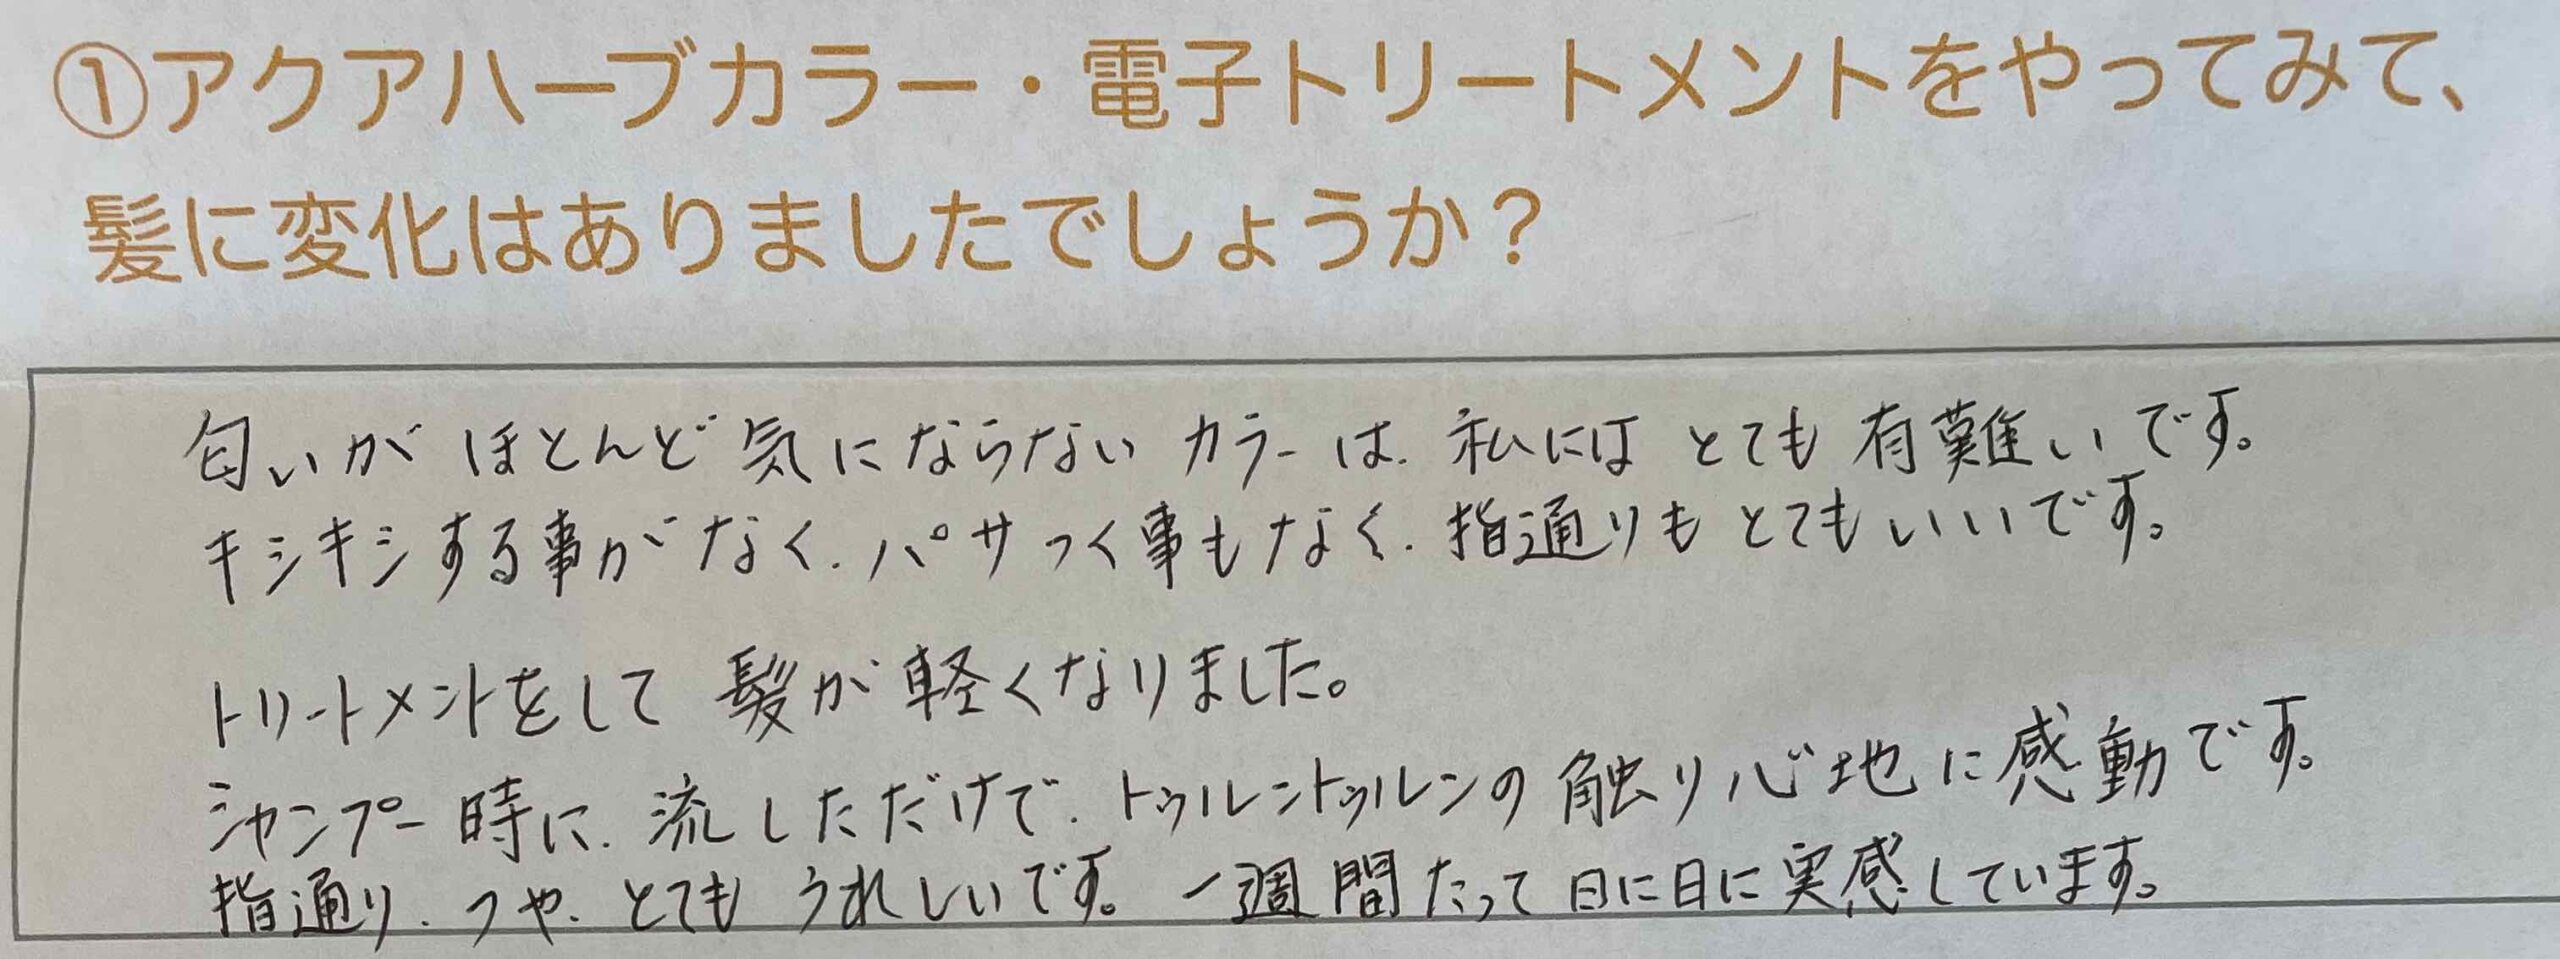 ①アクアハーブカラー・電子トリートメントをやってみて、
髪に変化はありましたでしょうか？
匂いがほとんど気にならないカラーは、私にはとても有難いです。
キシキシする事がなく、パサつく事もなく、指通りもとてもいいです。
トリートメントをして髪が軽くなりました。
シャンプー時に、流しただけで、トゥルントゥルンの触り心地に感動です。
指通り、つや、とてもうれしいです。一週間たって日に日に実感しています。